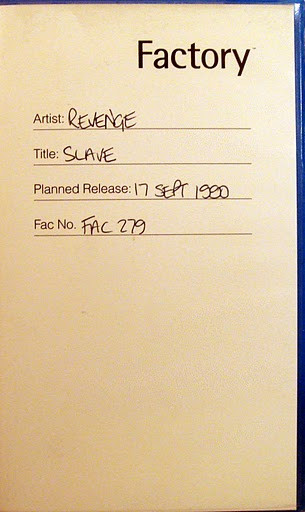 Factory™
Artist: REVENGE
Title: SLAVE
Planned Release: 17 SEPT 1990
Fac No. FAC 279